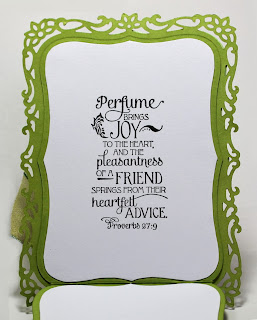 Perfume
BRINGS
JOY
TO THE HEART,
AND THE
pleasantness
OF A FRIEND
SPRINGS FROM THEIR
heartfelt
ADVICE.
Proverbs 27:9